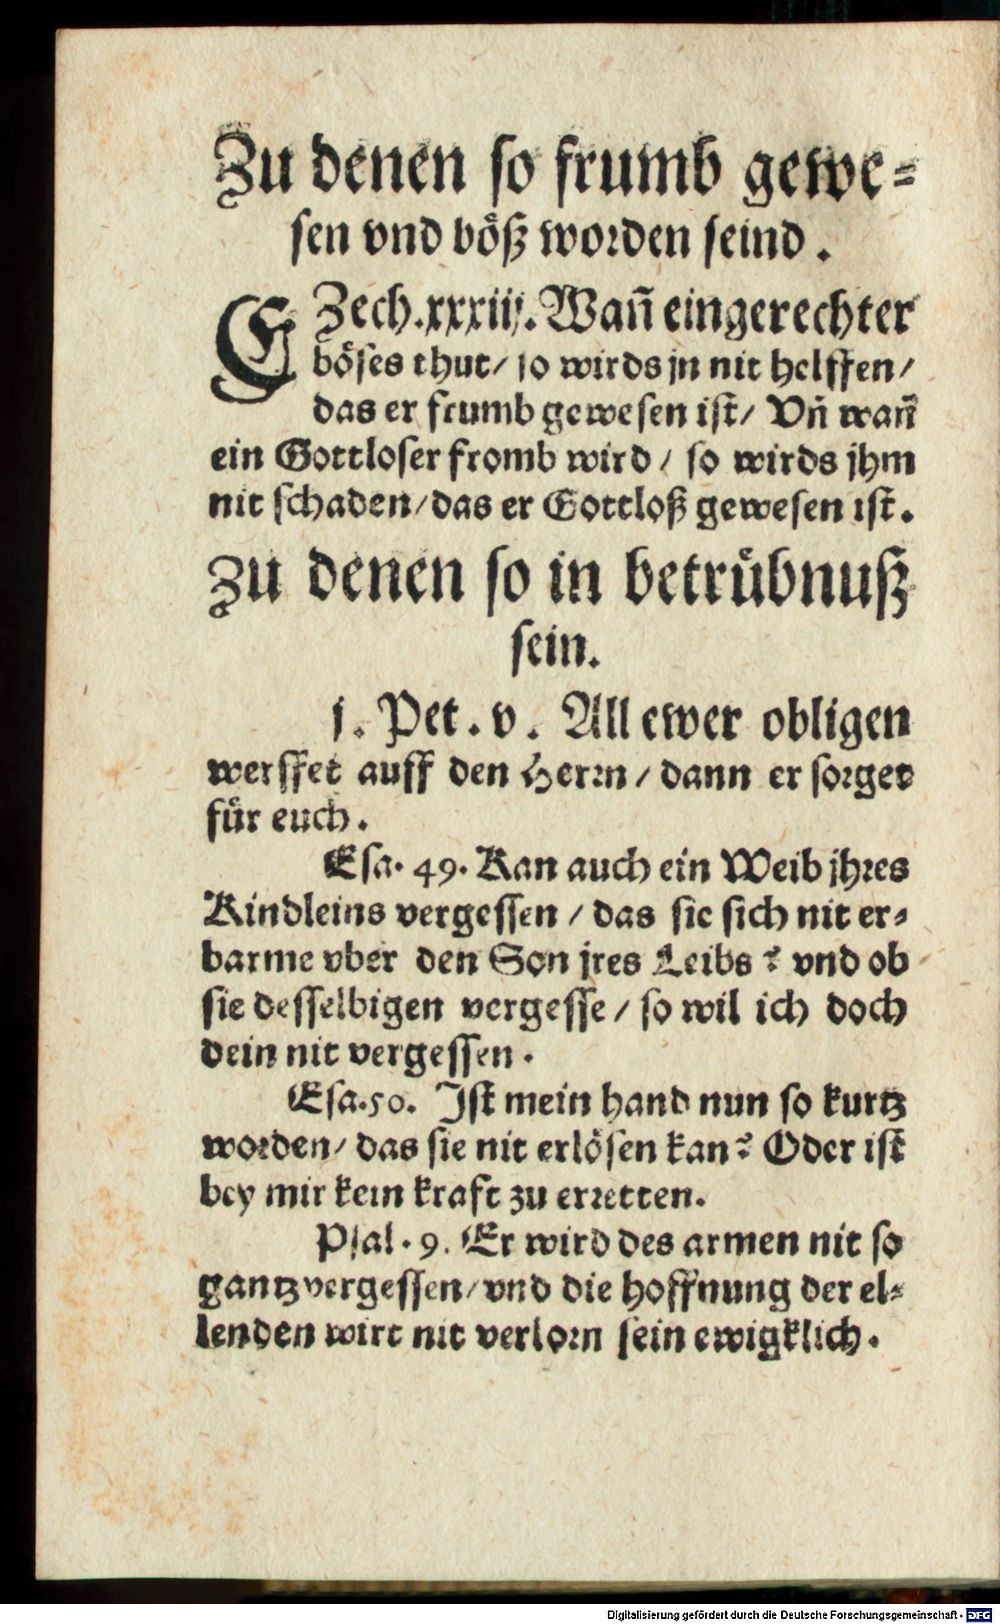 Zu denen so frumb gewe-
sen vnd böß worden seind.
EZech. xxxiij. Wañ ein gerechter
böses thut/ so wirds jn nit helffen/
das er frumb gewesen ist/ Vñ wañ
ein Gottloser fromb wird/ so wirds jhm
nit schaden/ das er Gottloß gewesen ist.
Zu denen so in betrübnuß
sein.
j. Pet. v. All ewer obligen
werffet auff den Herrn/ dann er sorget
für euch.
Esa. 49. Kan auch ein Weib jhres
Kindleins vergessen/ das sie sich nit er-
barme vber den Son jres Leibs? vnd ob
sie desselbigen vergesse/ so wil ich doch
dein nit vergessen.
Esa. 50. Ist mein hand nun so kurtz
worden/ das sie nit erlösen kan? Oder ist
bey mir kein kraft zu erretten.
Psal. 9. Er wird des armen nit so
gantz vergessen/ vnd die hoffnung der el-
lenden wirt nit verlorn sein ewigklich.
Digitalisierung gefördert durch die Deutsche Forschungsgemeinschaft - DFG